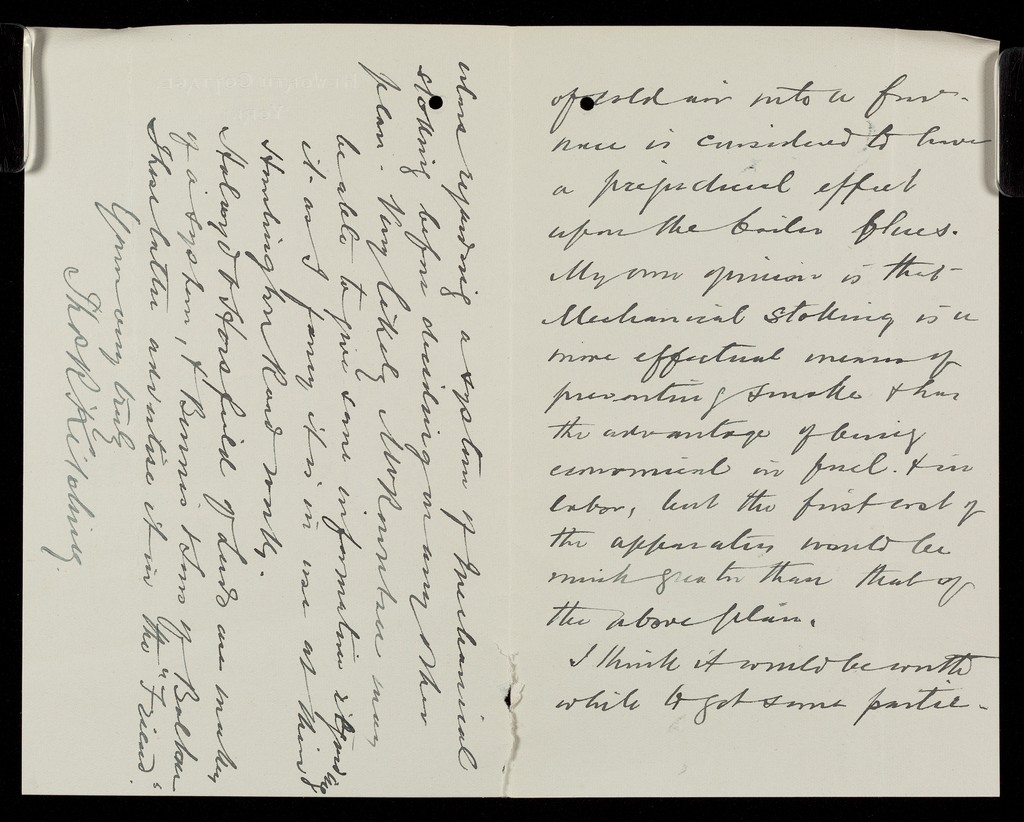 of cold air into a fur-
nace is considered to have
a prejudicial effect
upon the boiler flues.
My own opinion is that
Mechanical Stoking is a
more effectual means of
preventing smoke & has
the advantage of being
economical in fuel. & in
labor, but the first cost of
the apparatus would be
much greater than that of
the above plan.
I think it would be worth
while to get some partic-
ulars regarding a system of Mechanical
Stoking before deciding on any other
plan. Very likely Mr Rowntree may
be able to give some information regarding
it as I fancy it is in use at their
Road works.
& Horsfield of Leeds are makers
of a system, & Bennis & Son of Bolton
These latter advertise it in the "Friend".
Yours very truly
Thos R Kitching.